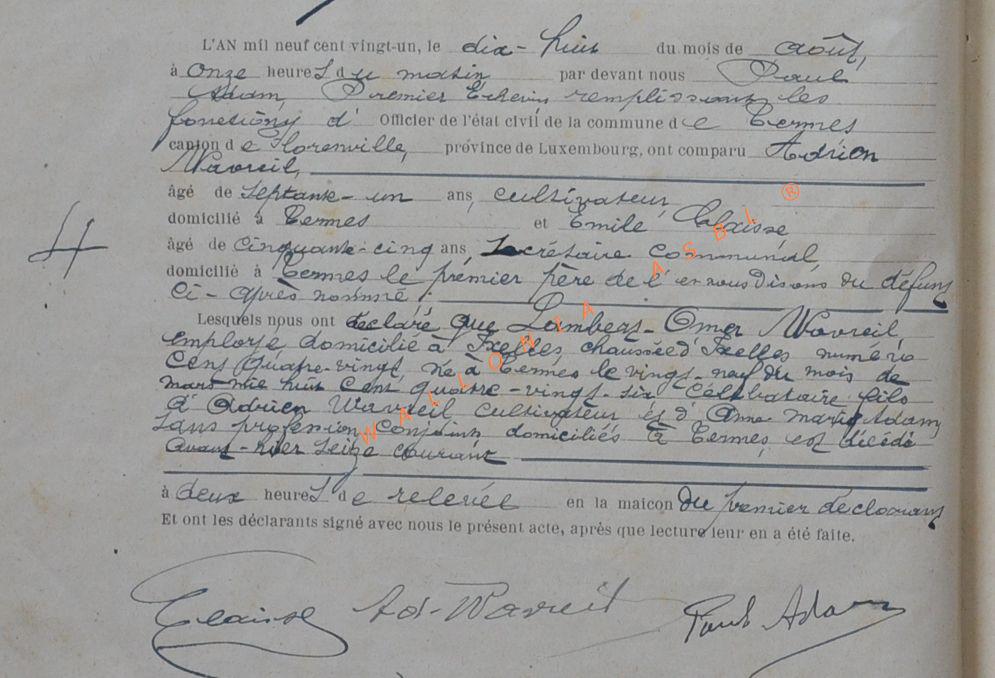 L'AN mil neuf cent vingt-un, le dix-huit du mois de août,
à onze heures du matin par devant nous Paul
Adam, Premier Echevin remplissant les
fonctions d' Officier de l'état civil de la commune de Termes
canton de Florenville, province de Luxembourg, ont comparu Adrien
Wavreil,
âgé de septante-un ans, cultivateur,
domicilié à Termes et Emile Claisse,
âgé de cinquante-cinq ans, secrétaire communal,
4
domicilié à Termes le premier père de l' et nous disons du défunt
ci-après nommé :
Lesquels nous ont déclaré que Lambert-Omer Wavreil,
employé domicilié à Ixelles, chaussée d'Ixelles numéro
cent quatre-vingt, né à Termes le vingt-neuf du mois de
mars mil huit cent quatre-vingt-six célibataire fils
d'Adrien Wavreil cultivateur et d'Anne Marie Adam,
sans profession, conjoints domiciliés à Termes, est décédé
avant-hier seize courant
à deux heures de relevée en la maicon du premier declarant
Et ont les déclarants signé avec nous le présent acte, après que lecture leur en a été faite.
Claisse Ad-Wavreil Paul Adam
WALLONIA ASBL ®